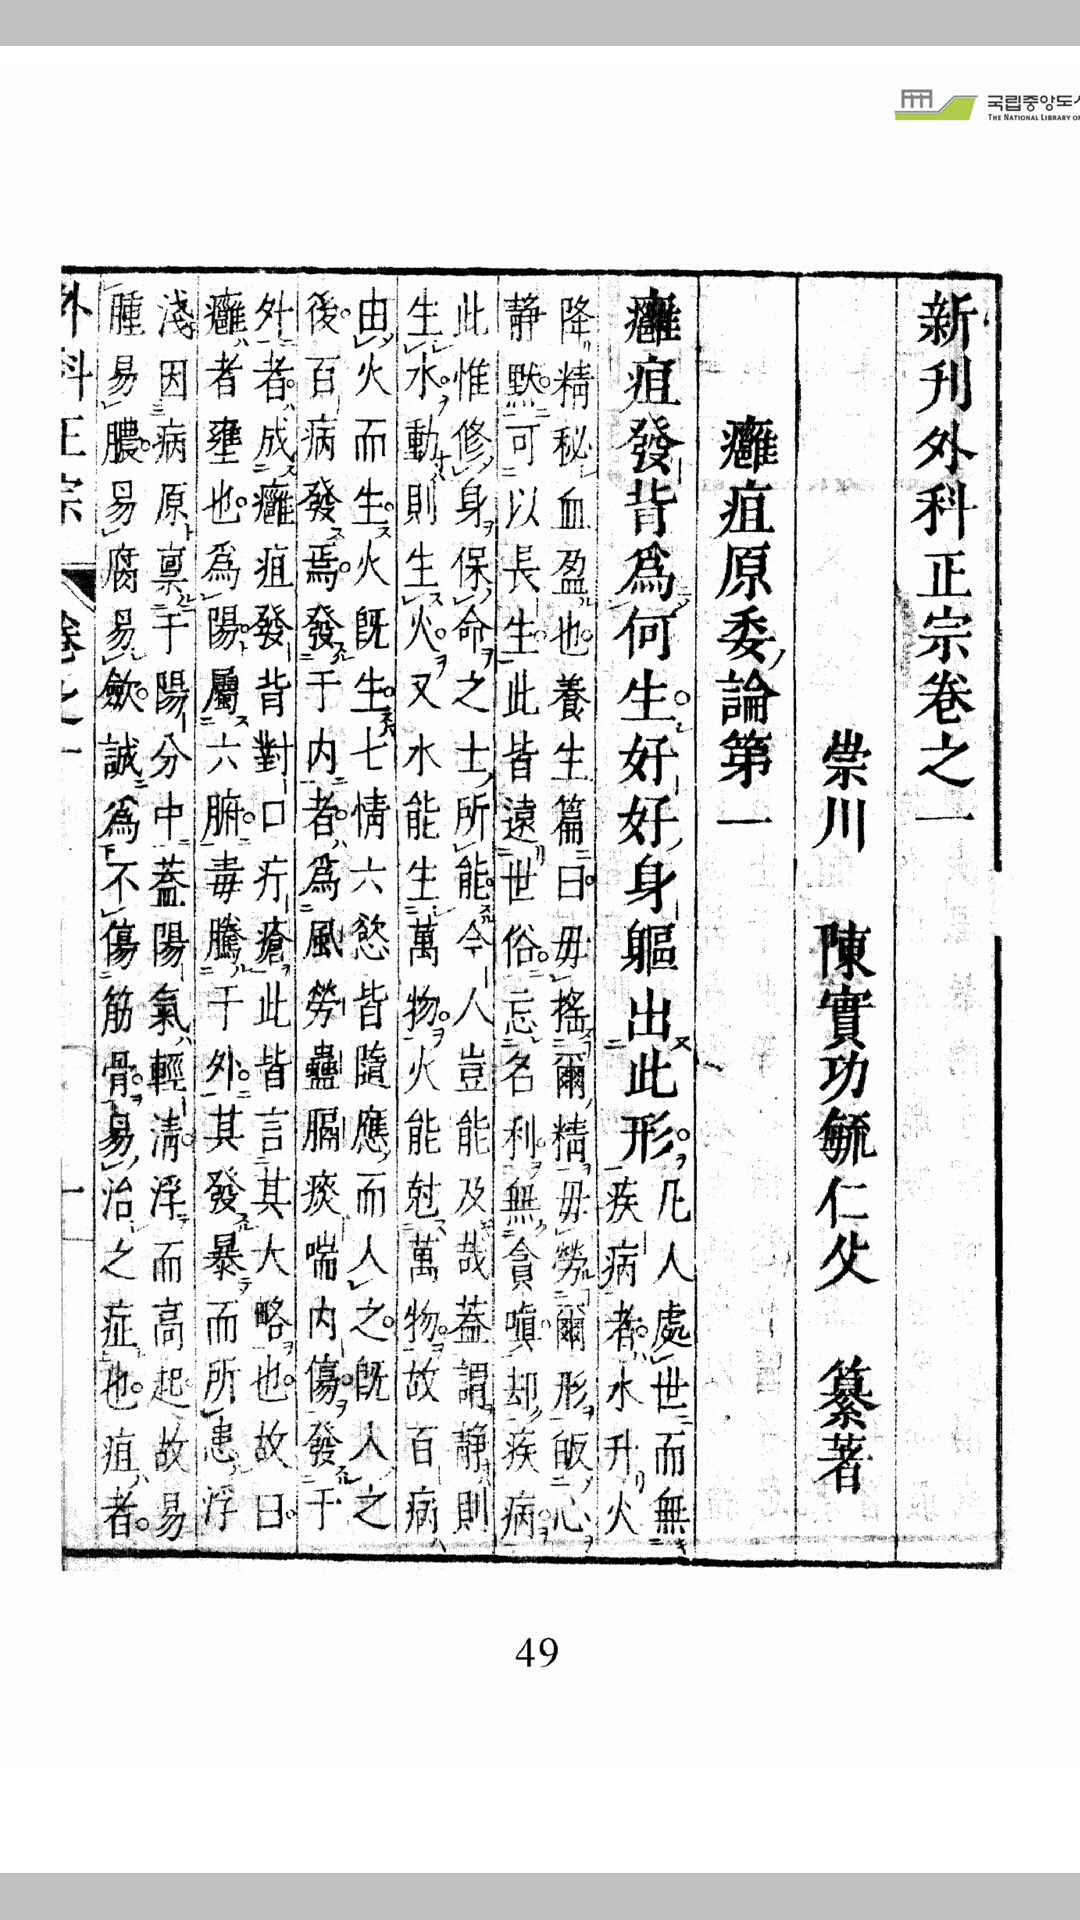 국립중앙도
THE NATIONAL LIBRARY O
新刊外科正宗卷之一
崇川 陳實功毓仁父 纂著
癰疽原委論第一
癰疽發背爲何生好好身軀出此形
凡人處世而無
疾病者水升火
降精秘血盈也養生篇曰毋搖爾精毋勞爾形皈心
静默可以長生此皆遠世俗忘名利無貪嗔却疾病
此惟修身保命之士所能今人豈能及哉蓋謂静則
生水動則生火又水能生萬物火能尅萬物故百病
由火而生火既生七情六慾皆隨應而人之既入之
後百病發焉發于内者爲風勞蠱膈痰喘内傷發于
外者成癰疽發背對口疔瘡此皆言其大略也故曰
癰者壅也爲陽屬六腑毒騰于外其發暴而所患浮
淺因病原禀于陽分中蓋陽氣輕清浮而高起故易
腫易膿易腐易歛誠爲不傷筋骨易治之症也疽者
外科正宗 卷之一 一
49